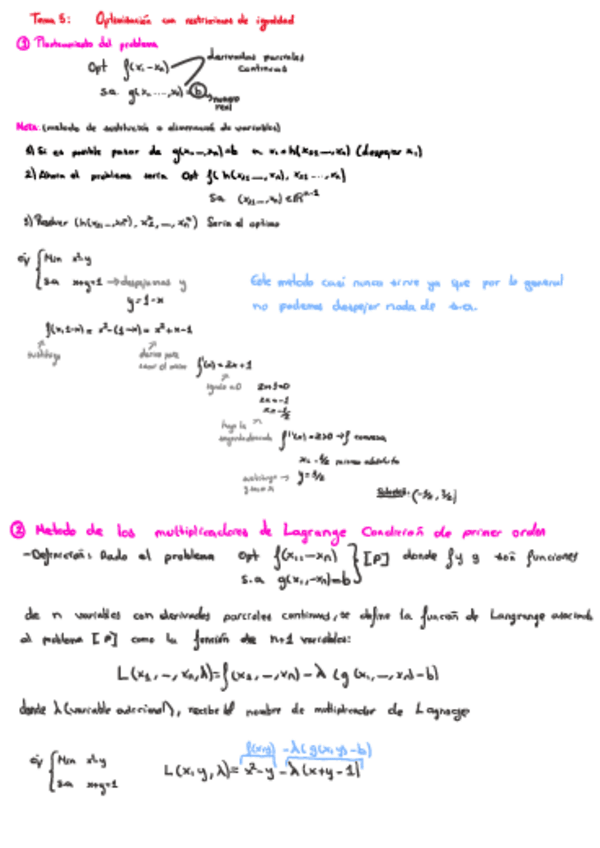 Tema 5: Optimización con restricciones de igualdad
① Planteamiento del problema
Opt f(x₁-xₙ) derivadas parciales continuas
s.a g(x₁,...,xₙ)=b → numero real
Nota: (metodo de sustitución o eliminación de variables)
1) Si es posible pasar de g(x₁,—,xₙ)=b a x₁=h(x₂,—,xₙ) (despejar x₁)
2) Ahora el problema seria Opt f(h(x₂,—,xₙ), x₂,...,xₙ)
s.a (x₂,—,xₙ)∈ℝⁿ⁻¹
3) Resolver (h(x₂,—,xₙ*), x₂*,—,xₙ*) Seria el optimo
ej { Min x²-y
s.a x+y=1 → despejamos y
y=1-x
Este metodo casi nunca sirve ya que por lo general
no podemos despejar nada de s.a.
f(x,1-x)= x²-(1-x)= x²+x-1
sustituyo
derivo para
f'(x)=2x+1
igualo a 0 2x+1=0
2x=-1
x=-1/2
hago la
segunda derivada f''(x)=2>0 → f convexa
x=-1/2 minimo absoluto
sustituyo → y=3/2
Solución: (-1/2, 3/2)
② Metodo de los multiplicadores de Lagrange Condición de primer orden
-Definición: Dado el problema Opt f(x₁,-xₙ) } [P] donde f y g son funciones
s.a g(x₁,-xₙ)=b
de n variables con derivadas parciales continuas, se define la función de Langrange asociada
al problema [P] como la función de n+1 variables:
L(x₁,-,xₙ,λ)=f(x₁,-,xₙ)-λ(g(x₁,-,xₙ)-b)
donde λ(variable adicional), recibe el nombre de multiplicador de Lagrange
f(x,y) -λ(g(x,y)-b)
ej { Min x²-y L(x,y,λ)= x²-y -λ(x+y-1)
s.a x+y=1